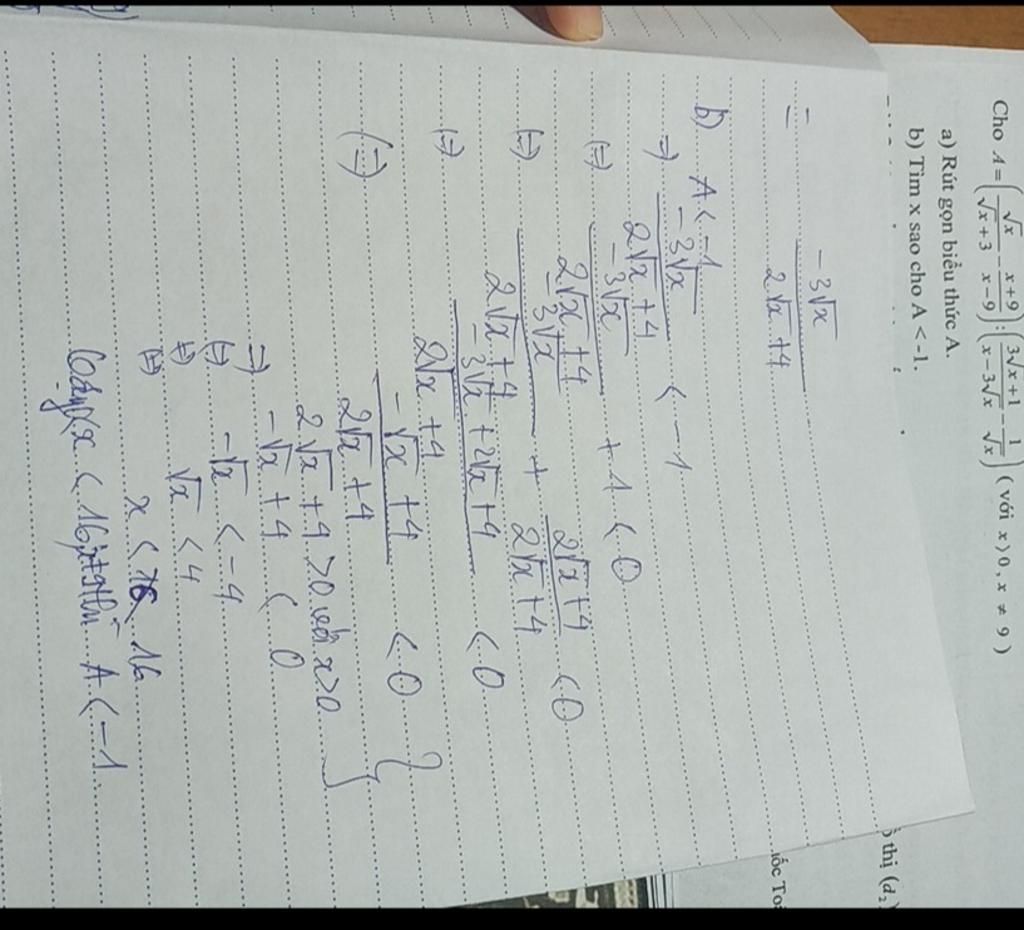 Cho A = (√x/(√x+3) − (x+9)/(x−9)) : ((3√x+1)/(x−3√x) − 1/√x) (với x⟩0, x ≠ 9)
a) Rút gọn biểu thức A.
b) Tìm x sao cho A < -1.
ồ thị (d₂)
uốc To
= −3√x/(2√x+4)
b) A < −1
=) −3√x/(2√x+4) < −1
(=) −3√x/(2√x+4) + 1 < 0
(=) −3√x/(2√x+4) + (2√x+4)/(2√x+4) < 0
(=) (−3√x + 2√x + 4)/(2√x+4) < 0
(=) (−√x + 4)/(2√x+4) < 0
2√x + 4 > 0 với x > 0
=) −√x + 4 < 0
(=) −√x < −4
(=) √x < 4
(=) x < 16
x < 16, x≠9 thì A < −1